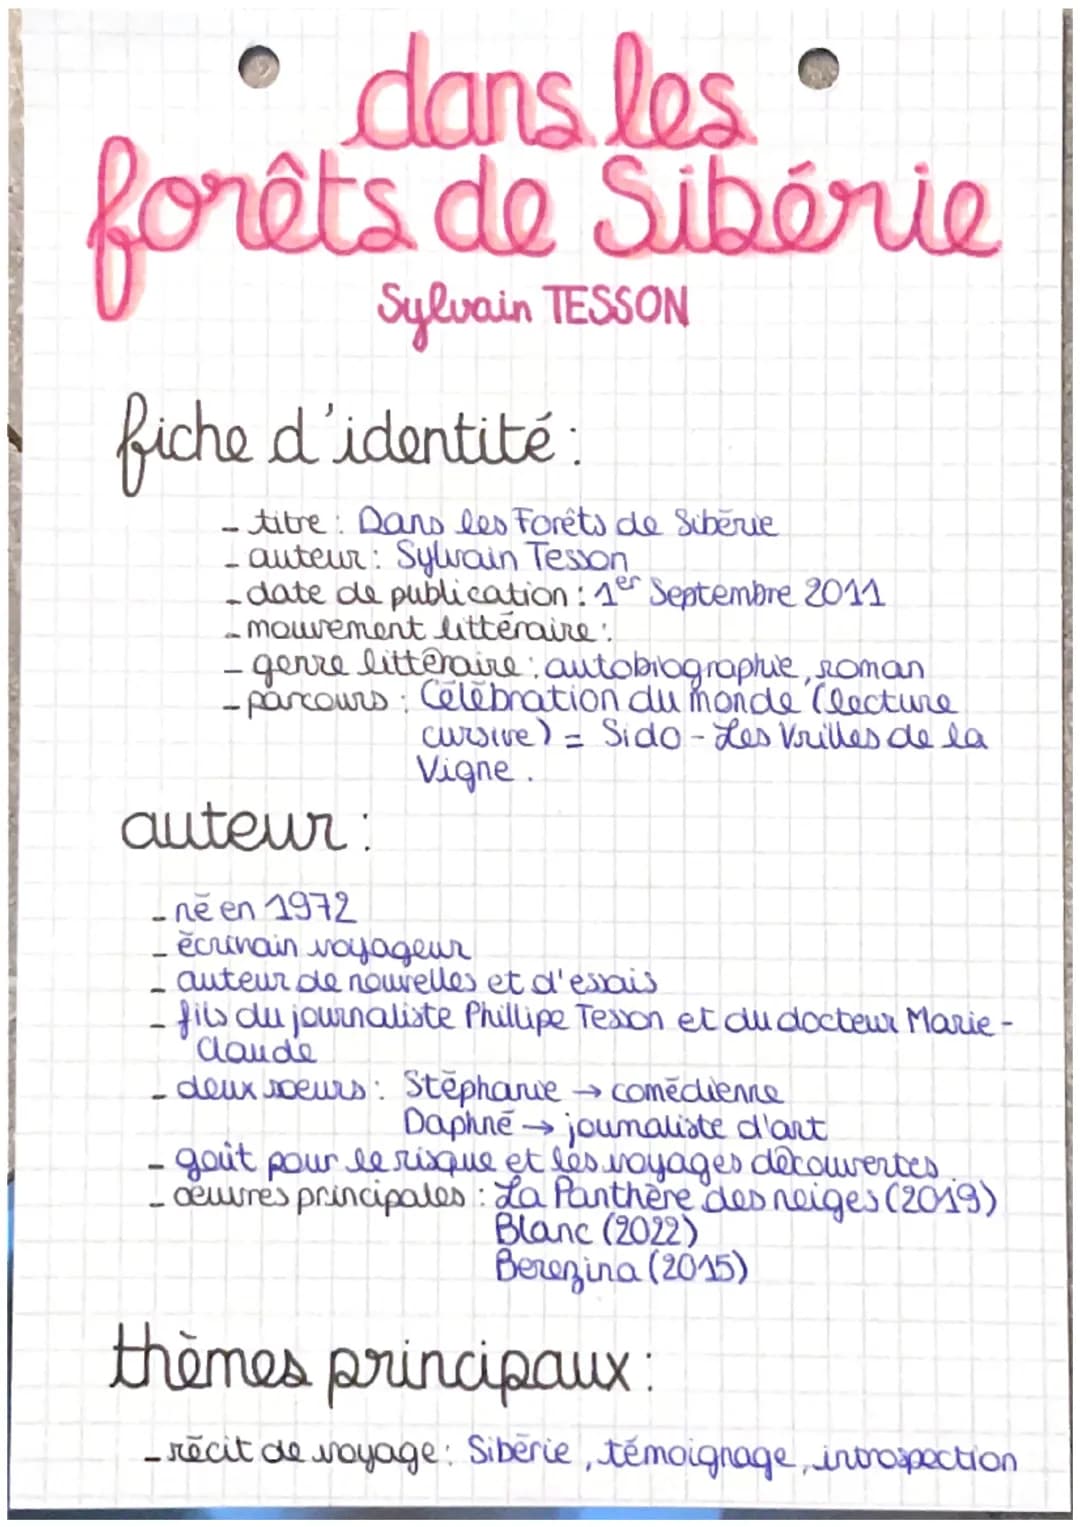 dans les
forêts de Sibérie
Sylvain TESSON
fiche d'identité :
- titre : Dans les Forêts de Sibérie
- auteur : Sylvain Tesson
- date de publication : 1er Septembre 2011
- mouvement littéraire :
- genre littéraire : autobiographie, roman
- parcours : Célébration du monde (lecture
cursive) = Sido - Les Vrilles de la
Vigne.
auteur :
- né en 1972
- écrivain voyageur
- auteur de nouvelles et d'essais
- fils du journaliste Phillipe Tesson et du docteur Marie-
Claude
- deux soeurs : Stéphanie → comédienne
Daphné → journaliste d'art
- goût pour le risque et les voyages découvertes
- oeuvres principales : La Panthère des neiges (2019)
Blanc (2022)
Berezina (2015)
thèmes principaux :
- récit de voyage : Sibérie, témoignage, introspection